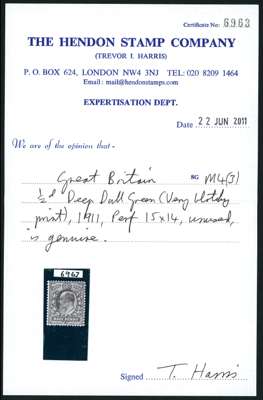 Certificate No: 6963
THE HENDON STAMP COMPANY
(TREVOR I. HARRIS)
P. O. BOX 624, LONDON NW4 3NJ TEL: 020 8209 1464
Email: mail@hendonstamps.com
EXPERTISATION DEPT.
Date 22 JUN 2011
We are of the opinion that -
Great Britain SG M4(3)
½d Deep Dull Green (Very blotchy
print), 1911, Perf 15x14, unused,
is genuine.
6963
Signed T. Harris